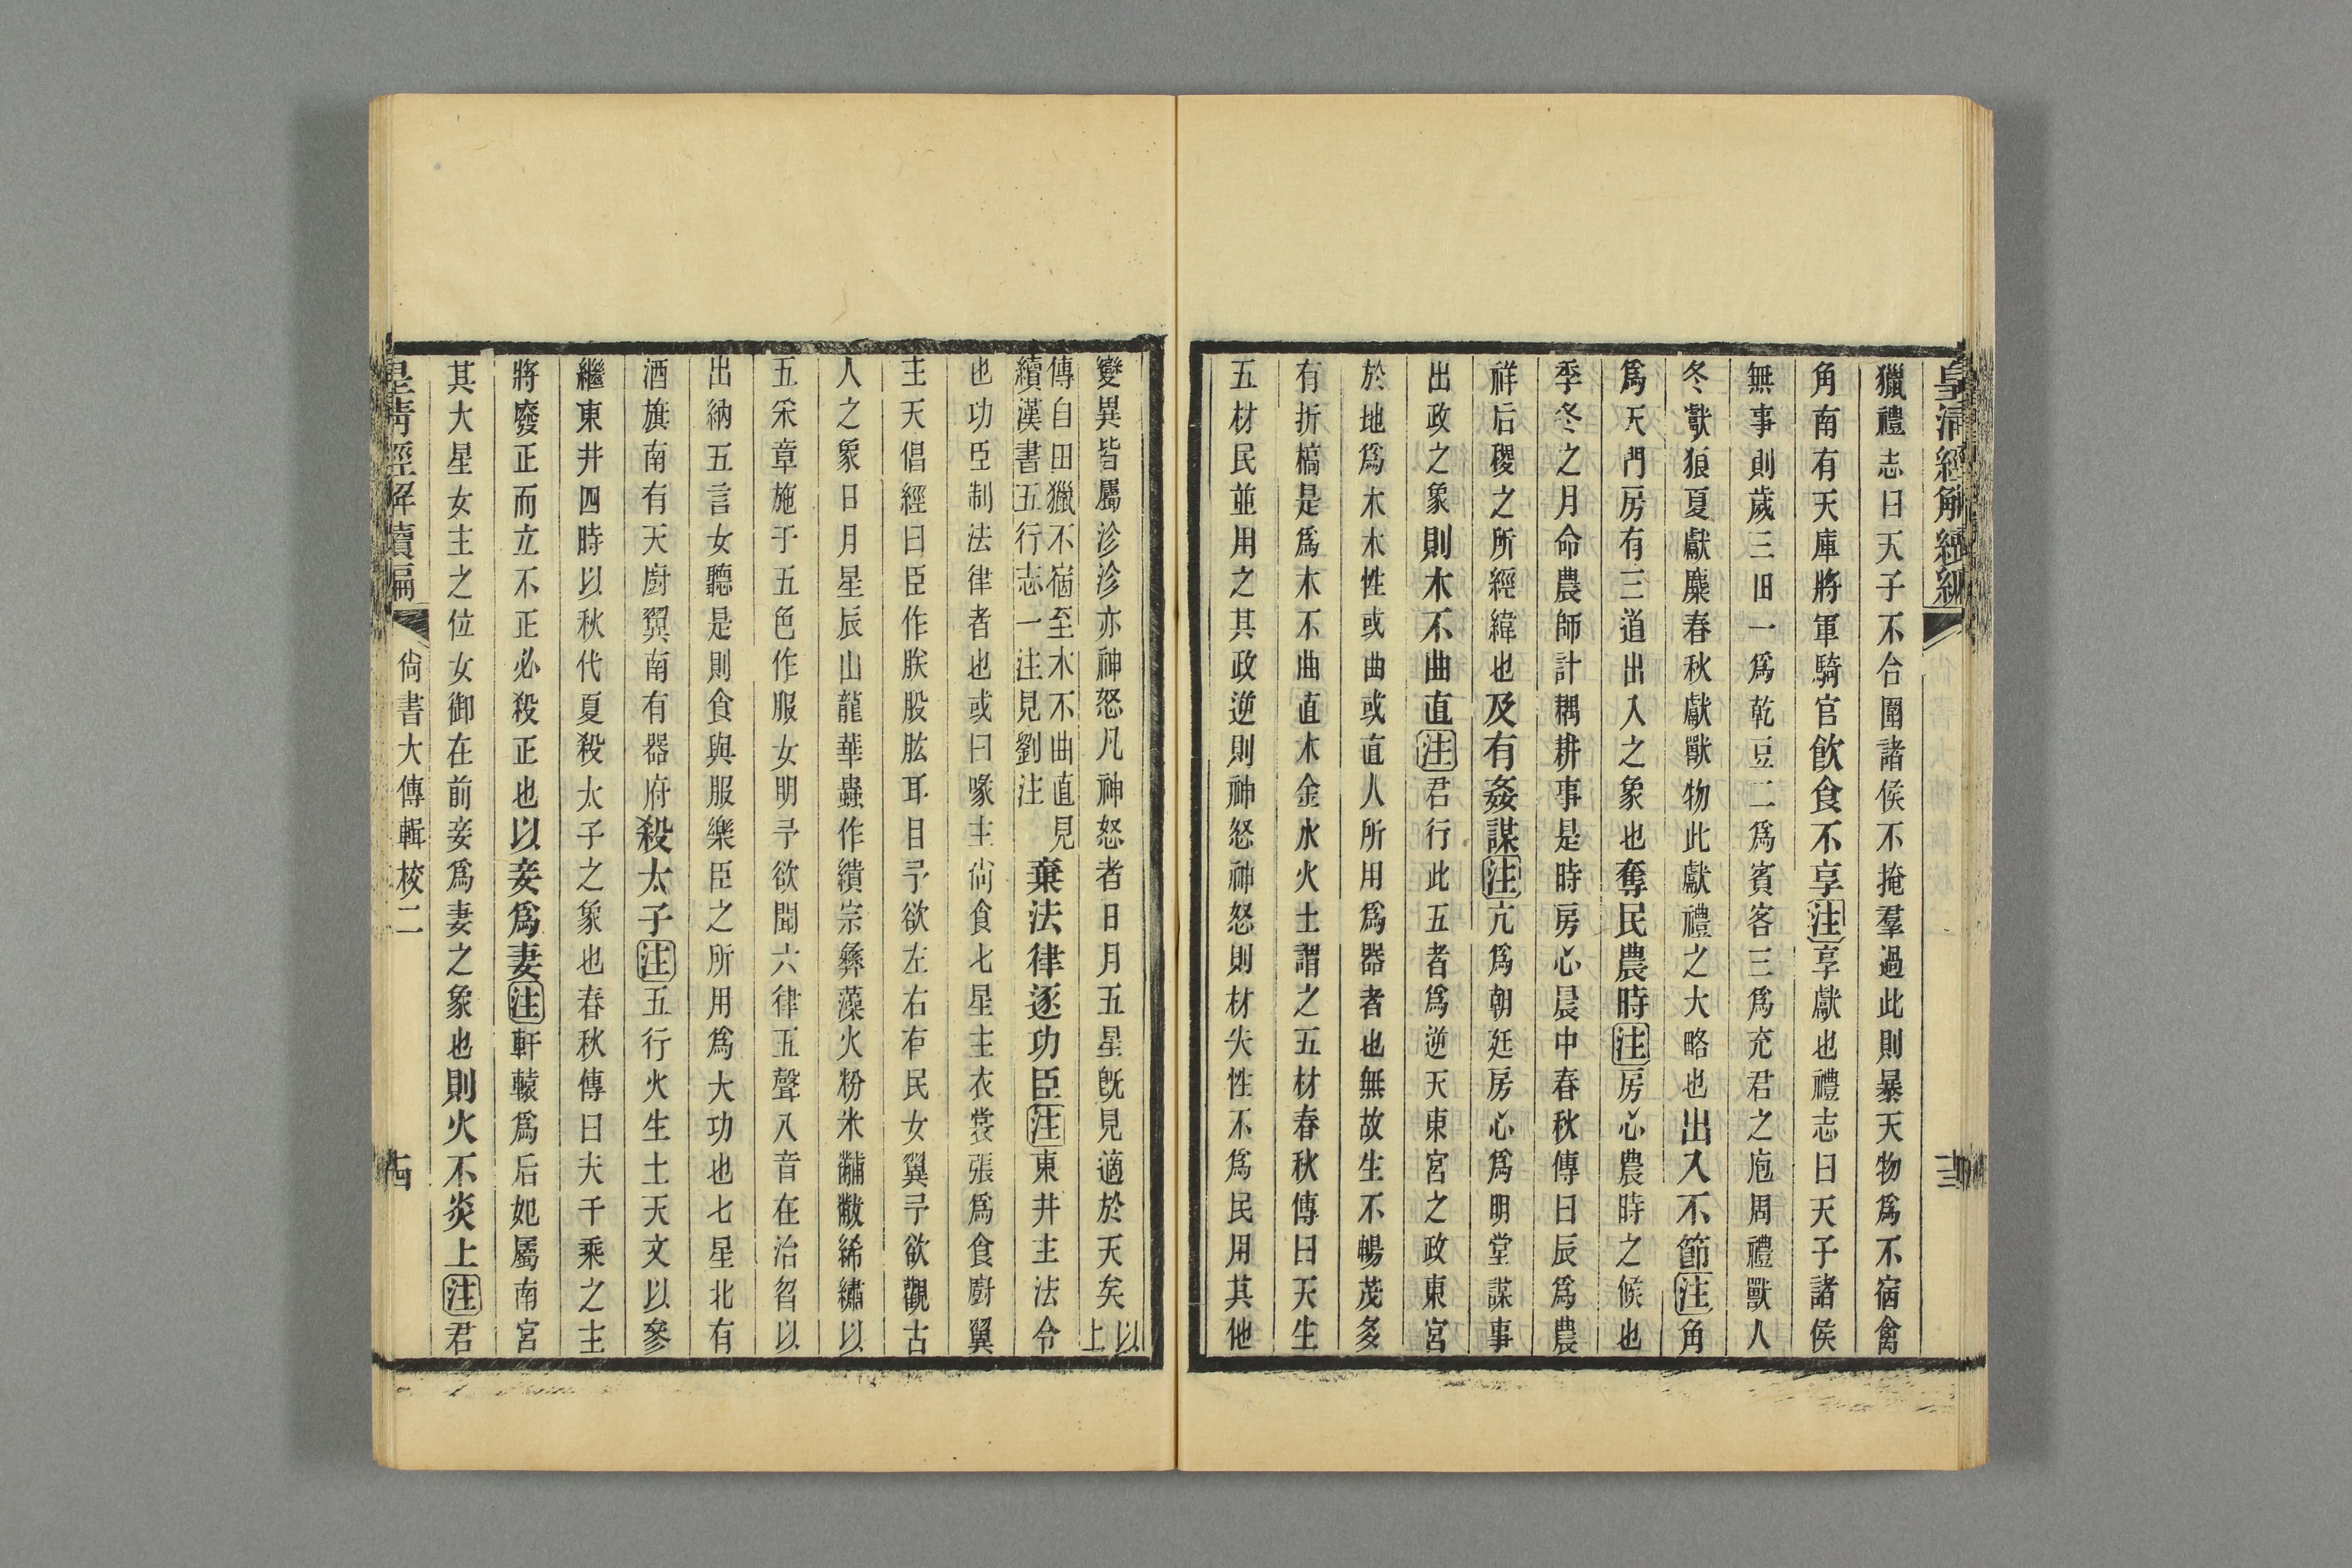 皇清經解續編
十三
獵禮志曰天子不合圍諸侯不掩羣過此則暴天物爲不宿禽
角南有天庫將軍騎官飮食不享注享獻也禮志曰天子諸侯
無事則歲三田一爲乾豆二爲賓客三爲充君之庖周禮獸人
冬獻狼夏獻麋春秋獻獸物此獻禮之大略也出入不節注角
爲天門房有三道出入之象也奪民農時注房心農時之候也
季冬之月命農師計耦耕事是時房心晨中春秋傳曰辰爲農
祥后稷之所經緯也及有姦謀注亢爲朝廷房心爲明堂謀事
出政之象則木不曲直注君行此五者爲逆天東宮之政東宮
於地爲木木性或曲或直人所用爲器者也無故生不暢茂多
有折槁是爲木不曲直木金水火土謂之五材春秋傳曰天生
五材民並用之其政逆則神怒神怒則材失性不爲民用其他
變異皆屬沴沴亦神怒凡神怒者日月五星旣見適於天矣以上
傳自田獵不宿至木不曲直見
續漢書五行志一注見劉注
棄法律逐功臣注東井主法令
也功臣制法律者也或曰喙主尙食七星主衣裳張爲食廚翼
主天倡經曰臣作朕股肱耳目予欲左右有民女翼予欲觀古
人之象日月星辰山龍華蟲作繢宗彝藻火粉米黼黻絺繡以
五采章施于五色作服女明予欲聞六律五聲八音在治曶以
出納五言女聽是則食與服樂臣之所用爲大功也七星北有
酒旗南有天廚翼南有器府殺太子注五行火生土天文以參
繼東井四時以秋代夏殺太子之象也春秋傳曰夫千乘之主
將廢正而立不正必殺正也以妾爲妻注軒轅爲后妃屬南宮
其大星女主之位女御在前妾爲妻之象也則火不炎上注君
皇清經解續編
尙書大傳輯校二
十四